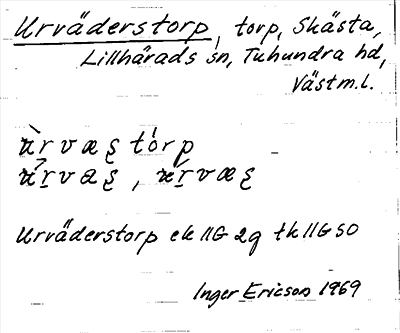 Urväderstorp, torp, Skästa,
Lillhärads sn, Tuhundra hd,
Västm.l.
ùrvæʂ tórp
Urväderstorp ek 11G 2g tk 11G SO
Inger Ericson 1969